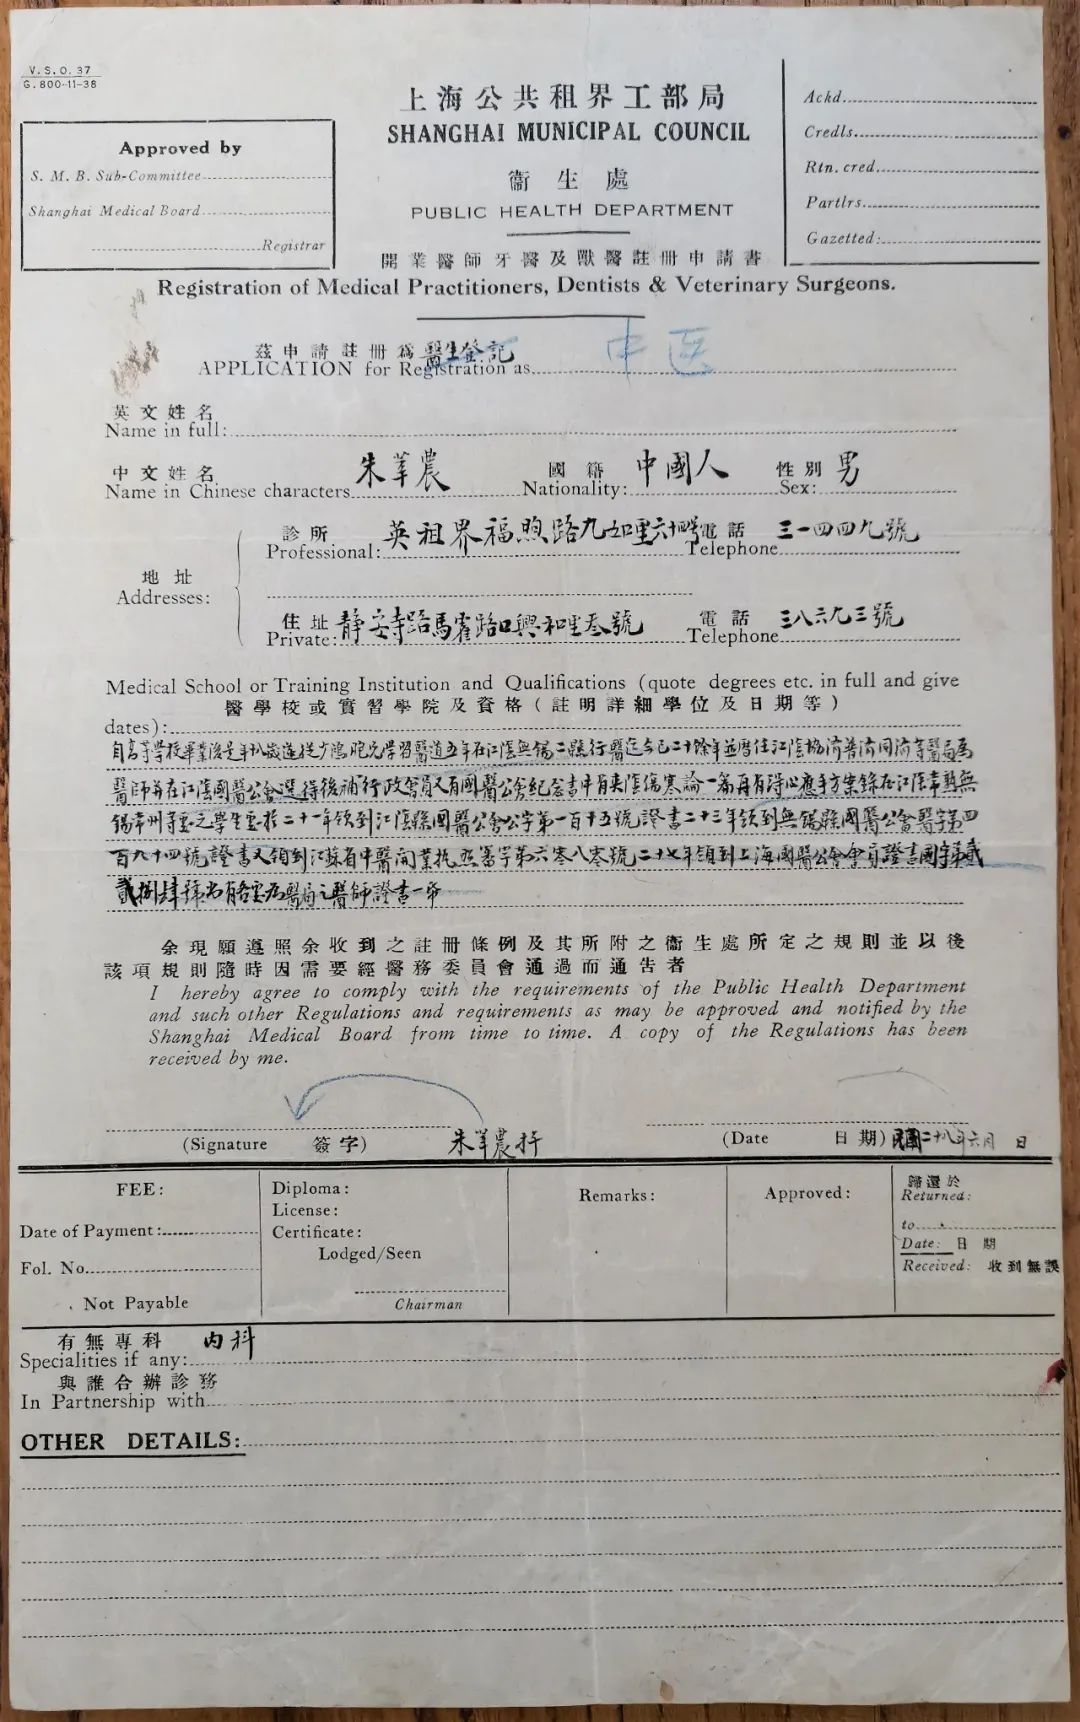 V.S.O. 37
G. 800-11-38
Approved by
S. M. B. Sub-Committee
Shanghai Medical Board
Registrar
上海公共租界工部局
SHANGHAI MUNICIPAL COUNCIL
衞生處
PUBLIC HEALTH DEPARTMENT
開業醫師牙醫及獸醫註册申請書
Achd.
Credls.
Rtn. cred.
Partlrs.
Gazetted:
Registration of Medical Practitioners, Dentists & Veterinary Surgeons.
茲申請註册爲醫生登記 中医
APPLICATION for Registration as
英文姓名
Name in full:
中文姓名 朱莘農 國籍 中國人 性別 男
Name in Chinese characters Nationality: Sex:
診所 英租界福煦路九如里六十四號 電話 三一四四九號
Professional: Telephone
地址
Addresses:
住址 靜安寺路馬霍路口興和里叁號 電話 三八六九三號
Private: Telephone
Medical School or Training Institution and Qualifications (quote degrees etc. in full and give
醫學校或實習學院及資格(註明詳細學位及日期等)
dates):
自高等學校畢業後是年十八歲遂從方鴻胞兄學習醫道五年在江陰無錫二縣行醫迄今已二十餘年並歷任江陰協濟普濟同濟等醫局爲
醫師并在江陰國醫公會選得後補行政會員又有國醫公會紀念書中有夾陰傷寒論一篇再有得心應手方案錄在江陰常熟無
錫常州等處之學生處於二十一年領到江陰縣國醫公會公字第一百十五號證書二十三年領到無錫縣國醫公會醫字第四
百九十四號證書又領到江蘇省中醫開業執照審字第六零八零號二十七年領到上海國醫公會會員證書國字第貳
貳捌肆號尚有各處病醫局之醫師證書一宗
余現願遵照余收到之註册條例及其所附之衞生處所定之規則並以後
該項規則隨時因需要經醫務委員會通過而通告者
I hereby agree to comply with the requirements of the Public Health Department
and such other Regulations and requirements as may be approved and notified by the
Shanghai Medical Board from time to time. A copy of the Regulations has been
received by me.
(Signature 簽字) 朱莘農 (Date 日期) 民國二十八年六月 日
FEE:
Date of Payment:
Fol. No.
Not Payable
Diploma:
License:
Certificate:
Lodged/Seen
Chairman
Remarks:
Approved:
歸還於
Returned:
to
Date: 日期
Received: 收到無誤
有無專科 內科
Specialities if any:
與誰合辦診務
In Partnership with
OTHER DETAILS: